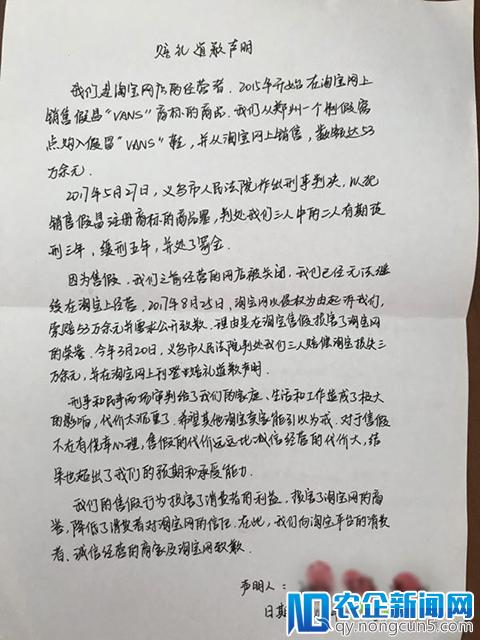 赔礼道歉声明
我们是淘宝网店的经营者. 2015年开始在淘宝网上
销售假冒“VANS”商标的商品. 我们从郑州一个制假窝
点购入假冒“VANS”鞋, 并从淘宝网上销售, 数额达53
万余元.
2017年5月27日, 义乌市人民法院作出刑事判决, 以犯
销售假冒注册商标的商品罪, 判处我们三人中的二人有期徒
刑三年, 缓刑五年, 并处了罚金.
因为售假, 我们之前经营的网店被关闭, 我们已经无法继
续在淘宝上经营. 2017年8月25日, 淘宝网以侵权为由起诉我们,
索赔53万余元并要求公开致歉. 理由是在淘宝售假损害了淘宝网
的荣誉. 今年3月20日, 义乌市人民法院判处我们三人赔偿淘宝损失三
万余元, 并在淘宝网上刊登出赔礼道歉声明.
刑事和民事两场审判给了我们的家庭、生活和工作造成了极大
的影响, 代价太沉重了. 希望其他淘宝卖家能引以为戒. 对于售假
不在有侥幸心理, 售假的代价远远比诚信经营的代价大, 结
果也超出了我们的预期和承受能力.
我们的售假行为损害了消费者的利益, 损害了淘宝网的商
誉, 降低了消费者对淘宝网的信任. 在此, 我们向淘宝平台的消费
者、诚信经营的商家及淘宝网致歉.
声明人:
日期
农企新闻网
qy.nongcun5.com